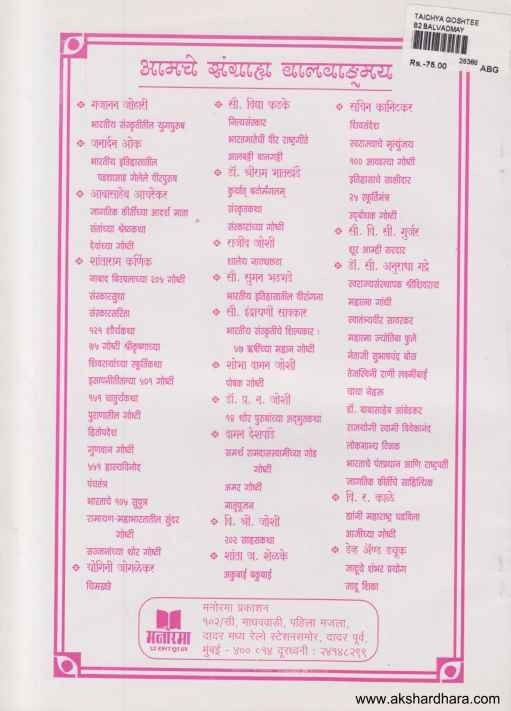 TAICHYA GOSHTEE
82 BALVADMAY
Rs.-75.00
25360
ABG
आमचे संग्राह्य बालवाङ्मय
❖ गजानन जोहारी
भारतीय संस्कृतीतील युगपुरुष
❖ जनार्दन ओक
भारतीय इतिहासातील
पडद्याआड गेलेले वीरपुरुष
❖ आबासाहेब आचरेकर
जागतिक कीर्तीच्या आदर्श माता
संतांच्या श्रेष्ठकथा
देवांच्या गोष्टी
❖ शांताराम कर्णिक
नाबाद बिरबलाच्या २०५ गोष्टी
संस्कारसुधा
संस्कारसरिता
१२१ शौर्यकथा
७५ गोष्टी श्रीकृष्णाच्या
शिवरायांच्या स्फूर्तिकथा
इसापनीतीतल्या ५०१ गोष्टी
१५१ चातुर्यकथा
पुराणातील गोष्टी
हितोपदेश
गुणवान गोष्टी
५५१ हास्यविनोद
पंचतंत्र
भारताचे १०५ सुपुत्र
रामायण-महाभारतातील सुंदर
गोष्टी
सज्जनांच्या थोर गोष्टी
❖ योगिनी जोगळेकर
चिमखडे
❖ सौ. विद्या फडके
नित्यसंस्कार
भारतमातेची वीर राष्ट्रगीते
आलबट्टी बालगट्टी
❖ डॉ. श्रीराम भातखंडे
कुर्यात् बटोर्मंगलम्
संस्कृतकथा
संस्काराच्या गोष्टी
❖ राजीव जोशी
शालेय नाट्यछटा
❖ सौ. सुमन भडभडे
भारतीय इतिहासातील वीरांगना
❖ सौ. इंद्रायणी सावकार
भारतीय संस्कृतीचे शिल्पकार :
५७ ऋषींच्या महान गोष्टी
❖ शोभा वामन जोशी
पोषक गोष्टी
❖ डॉ. प्र. न. जोशी
१४ थोर पुरुषांच्या अद्भुतकथा
❖ वामन देशपांडे
समर्थ रामदासस्वामींच्या गोड
गोष्टी
अमर गोष्टी
मातृपूजन
❖ वि. श्री. जोशी
२०२ साहसकथा
❖ शांता ज. शेळके
अकुबाई बकुबाई
❖ सचिन कानिटकर
शिवसंदेश
स्वराज्याचे मृत्युंजय
१०० आवडत्या गोष्टी
इतिहासाचे साक्षीदार
२५ स्फूर्तिमंत्र
उद्बोधक गोष्टी
❖ सौ. वि. सौ. गुर्जर
शूर आम्ही सरदार
❖ डॉ. सौ. अनुराधा गद्रे
स्वराज्यसंस्थापक श्रीशिवराय
महात्मा गांधी
स्वातंत्र्यवीर सावरकर
महात्मा ज्योतिबा फुले
नेताजी सुभाषचंद्र बोस
तेजस्विनी राणी लक्ष्मीबाई
चाचा नेहरू
डॉ. बाबासाहेब आंबेडकर
राजयोगी स्वामी विवेकानंद
लोकमान्य टिळक
भारताचे पंतप्रधान आणि राष्ट्रपती
जागतिक कीर्तीचे साहित्यिक
❖ वि. र. काळे
ह्यांनी महाराष्ट्र घडविला
आजीच्या गोष्टी
❖ डेव्ह अँण्ड ड्यूक
जादूचे शंभर प्रयोग
जादू शिका
मनोरमा
प्रकाशन
मनोरमा प्रकाशन
१०२/सी, माधववाडी, पहिला मजला,
दादर मध्य रेल्वे स्टेशनसमोर, दादर पूर्व,
मुंबई - ४०० ०१४ दूरध्वनी : २४१४८२९९
www.akshardhara.com